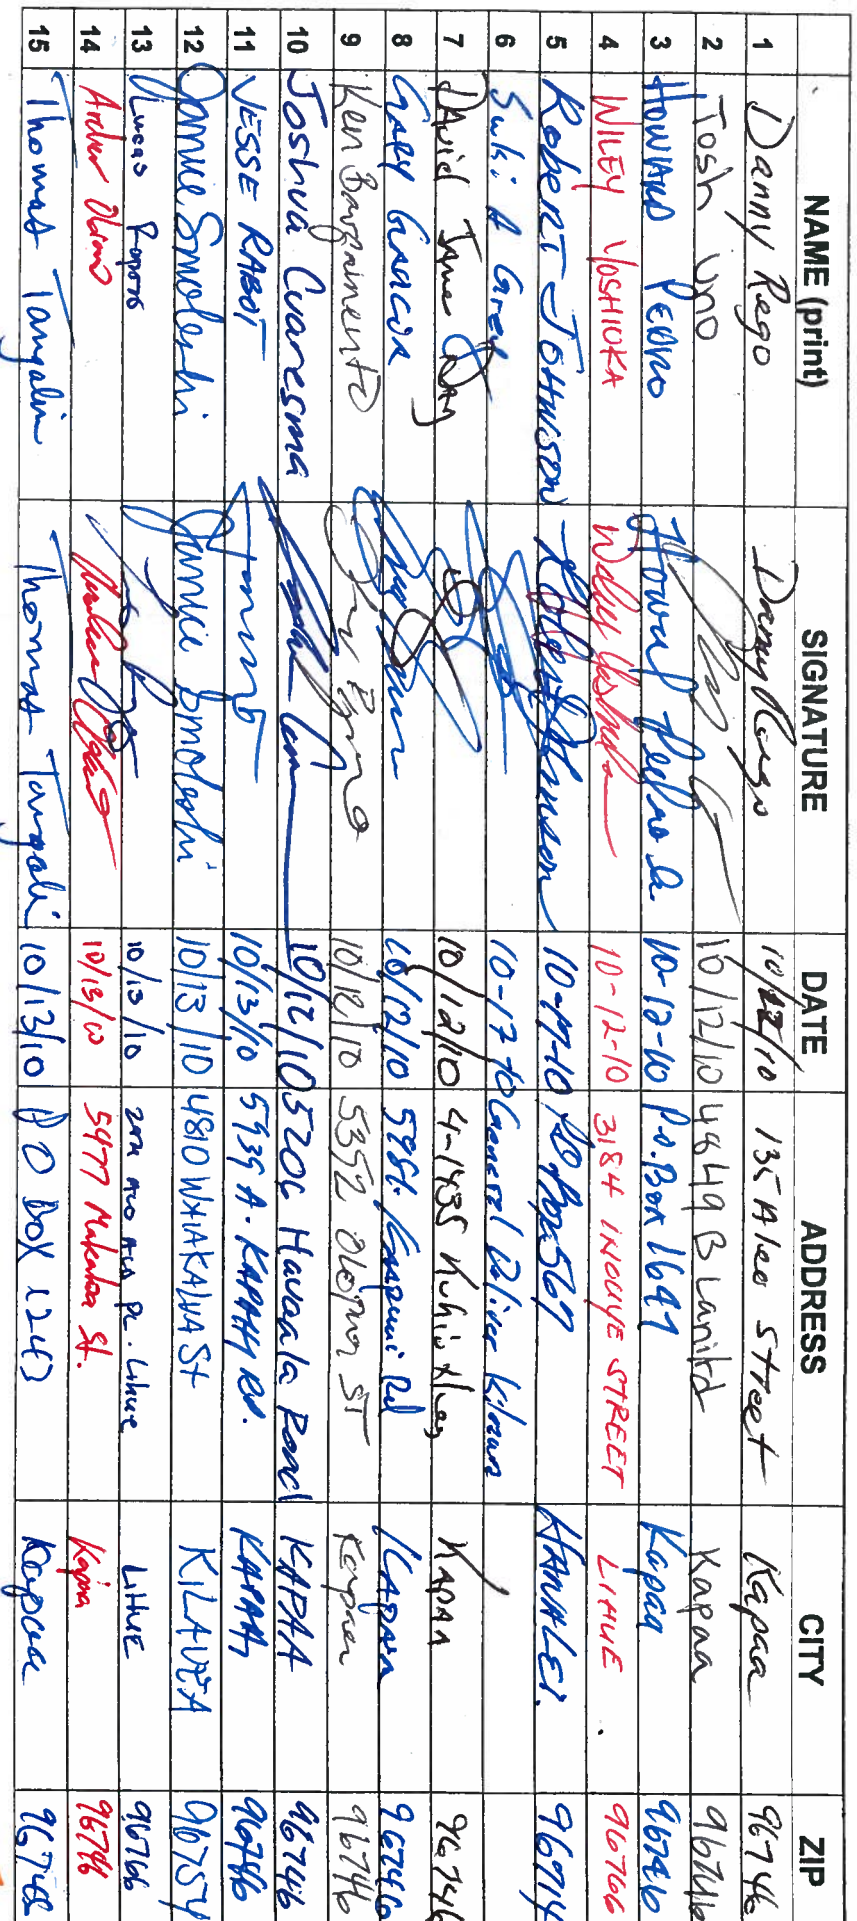 NAME (print) SIGNATURE DATE ADDRESS CITY ZIP
1 Danny Rego Danny Rego 10/12/10 135 A Leo Street Kapaa 96746
2 Tosh Uno 10/12/10 4649 B Kapaa 96746
3 HOWARD PEDRO Howard Pedro 10-12-10 P.O. Box 1641 Kapaa 96746
4 WILEY YOSHIOKA Wiley Yoshioka 10-12-10 3184 INOUYE STREET LIHUE 96766
5 ROBERT JOHNSON Robert Johnson PO Box 567 HANALEI. 96714
6 Suki A General
7 DAVID James 10/12/10 4-1435 Kuhio Hwy KAPAA 96746
8 GARY 10/12/10 Rd KAPAA 96746
9 Ken 10/12/10 5352 ST Kapaa 96746
10 Joshua Cuaresma 10/12/10 5206 Hauaala Road KAPAA 96746
11 JESSE RABOT 10/13/10 5939 A. KAPAHI RD. KAPAA 96746
12 Janice Smoleski Janice Smoleski 10/13/10 4810 WAIAKALUA St KILAUEA 96754
13 Lucas 10/13/10 PL. Lihue LIHUE 96766
14 10/13/10 5977 St. Kapaa 96746
15 Thomas Tangalin Thomas Tangalin 10/13/10 PO BOX 1243 Kapaa 96746